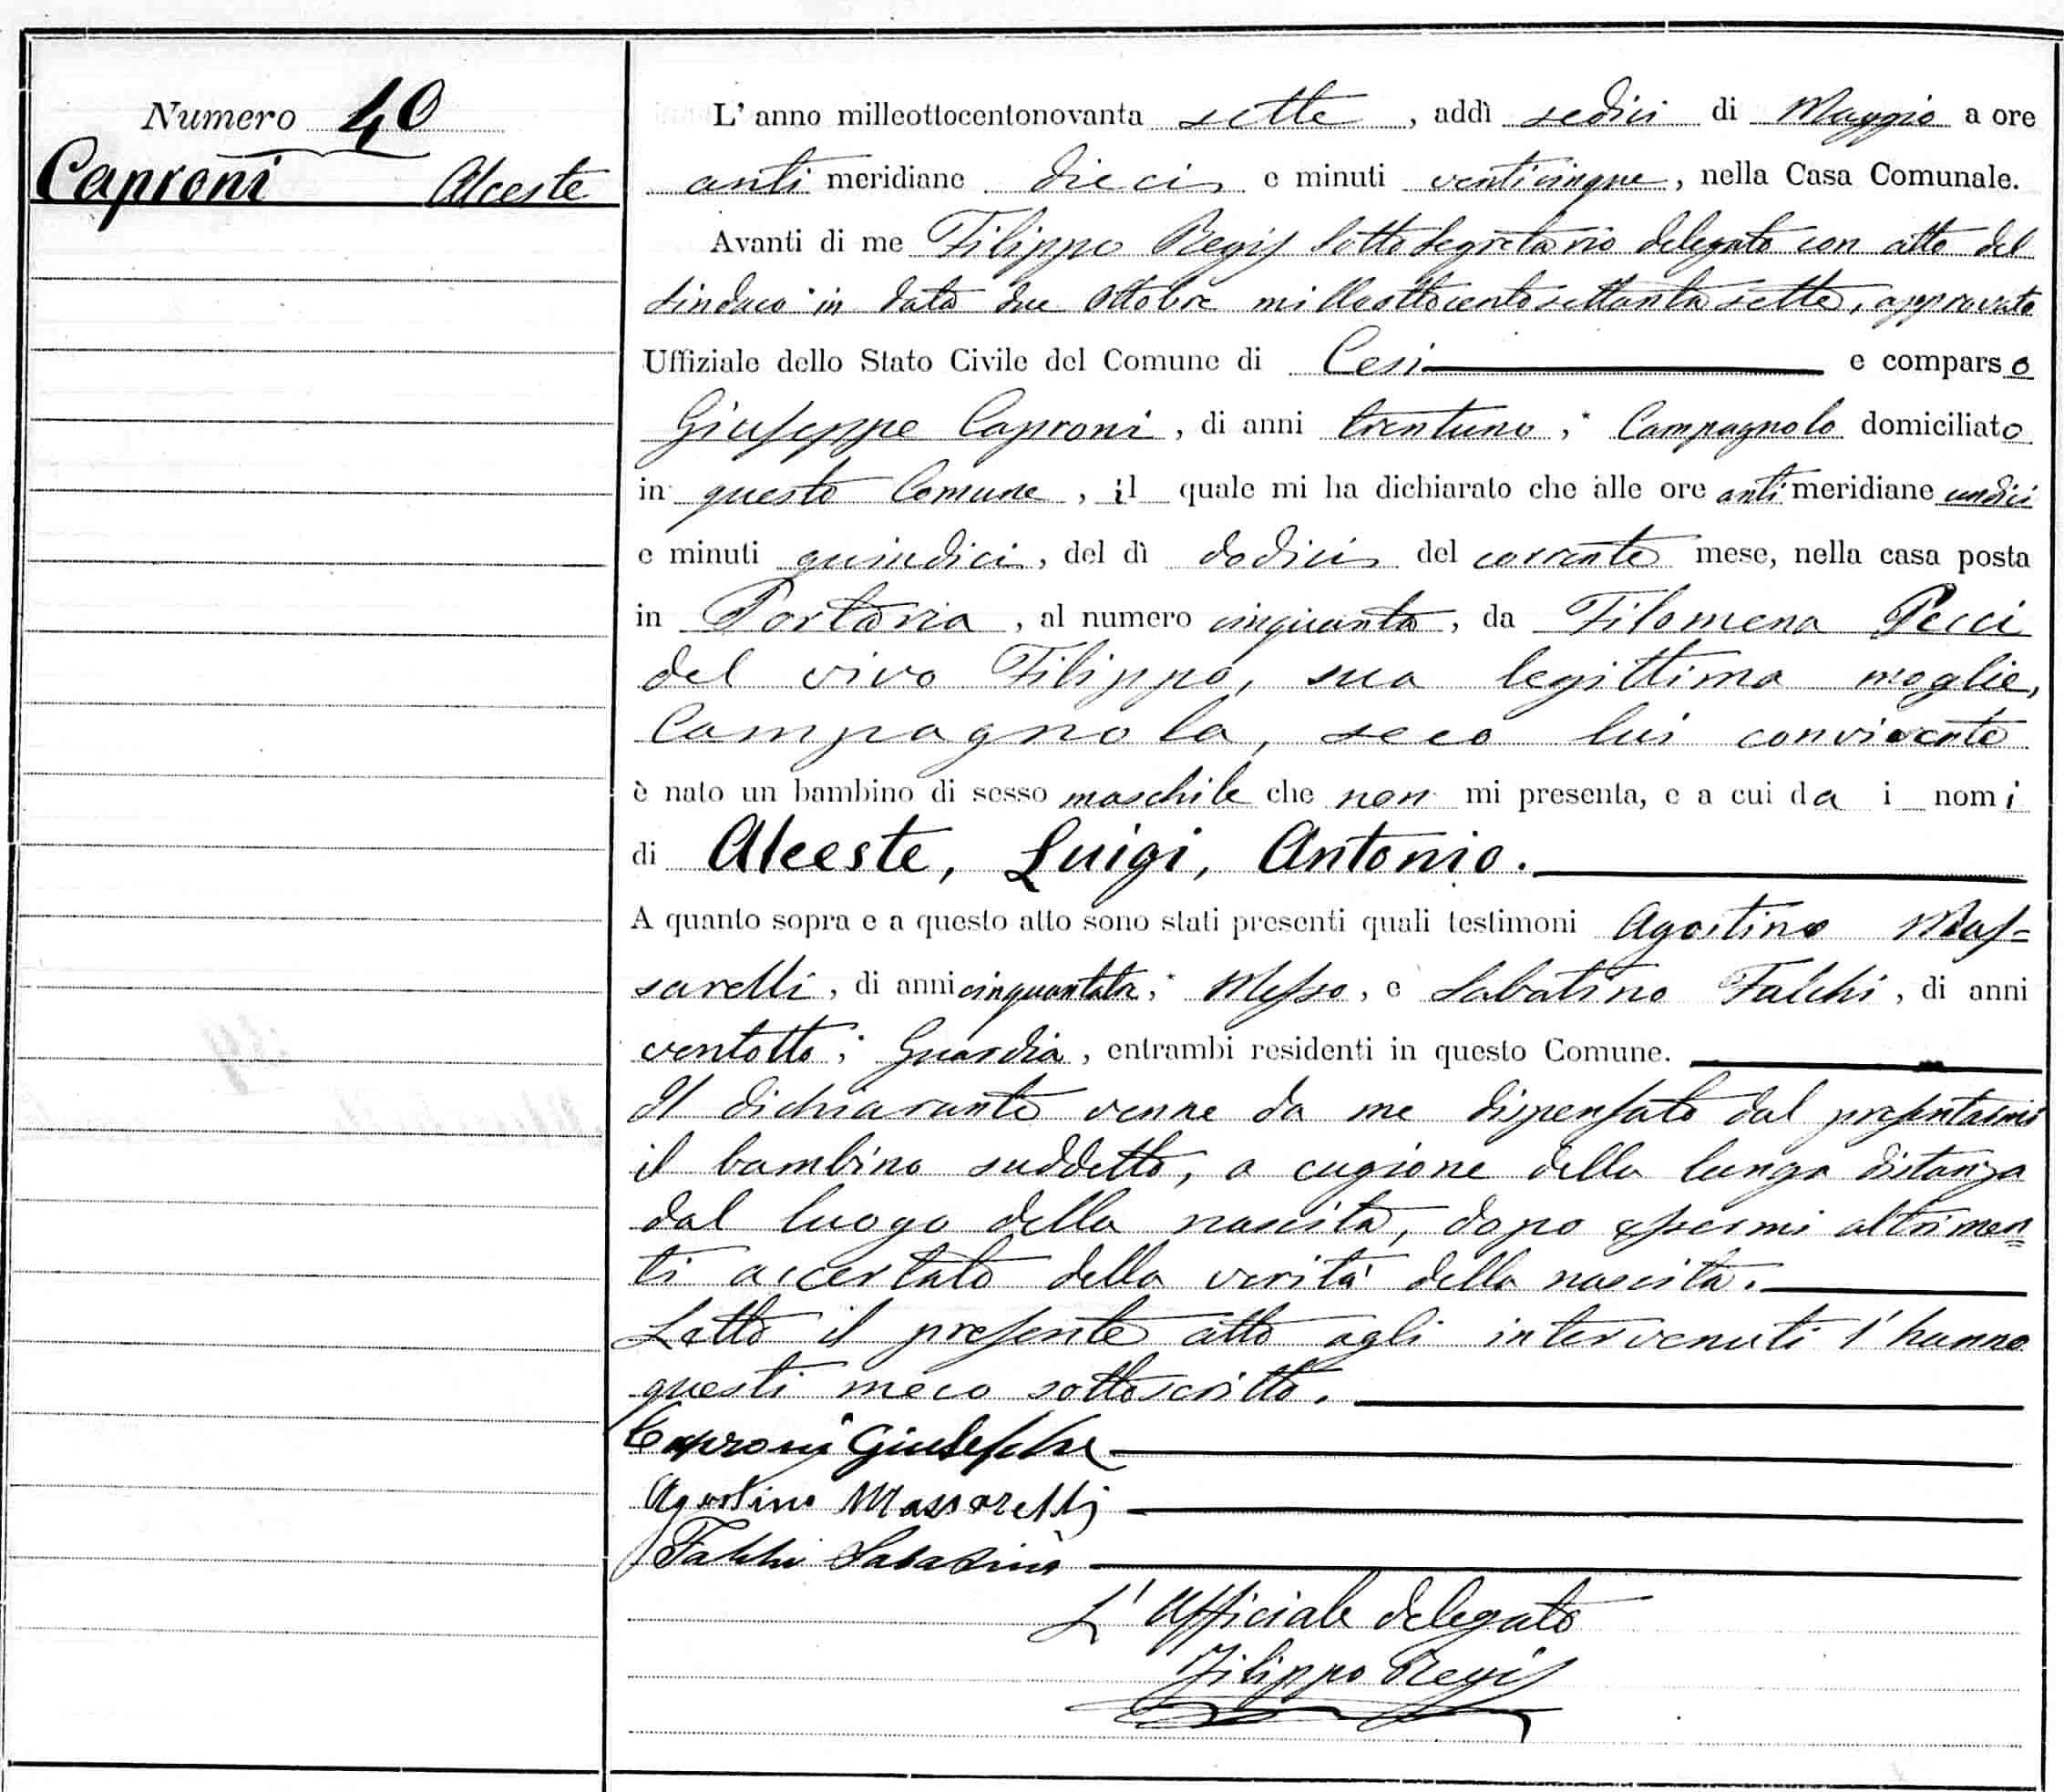 Numero 40
Caproni Alceste
L'anno milleottocentonovanta sette, addì sedici di Maggio a ore
anti meridiane dieci e minuti venticinque, nella Casa Comunale.
Avanti di me Filippo Regis Sotto Segretario delegato con atto del
Sindaco in data due Ottobre milleottocentosettantasette, approvato
Uffiziale dello Stato Civile del Comune di Cesi e comparso
Giuseppe Caproni, di anni trentuno, Campagnolo domiciliato
in questo Comune, il quale mi ha dichiarato che alle ore anti meridiane undici
e minuti quindici, del dì dodici del corrente mese, nella casa posta
in Portaria, al numero cinquanta, da Filomena Pecci
del vivo Filippo, sua legittima moglie,
Campagnola, seco lui convivente
è nato un bambino di sesso maschile che non mi presenta, e a cui da i nomi
di Alceste, Luigi, Antonio.
A quanto sopra e a questo atto sono stati presenti quali testimoni Agostino Mas=
sarelli, di anni Messo, e Sabatino Falchi, di anni
ventotto, Guardia, entrambi residenti in questo Comune.
Il dichiarante venne da me dispensato dal presentarmi
il bambino suddetto, a cagione della lunga distanza
dal luogo della nascita, dopo essermi altrimen=
ti accertato della verità della nascita.
Letto il presente atto agli intervenuti l'hanno
questi meco sottoscritto.
Caproni Giuseppe
Agostino Massarelli
Falchi Sabatino
L'Ufficiale delegato
Filippo Regis